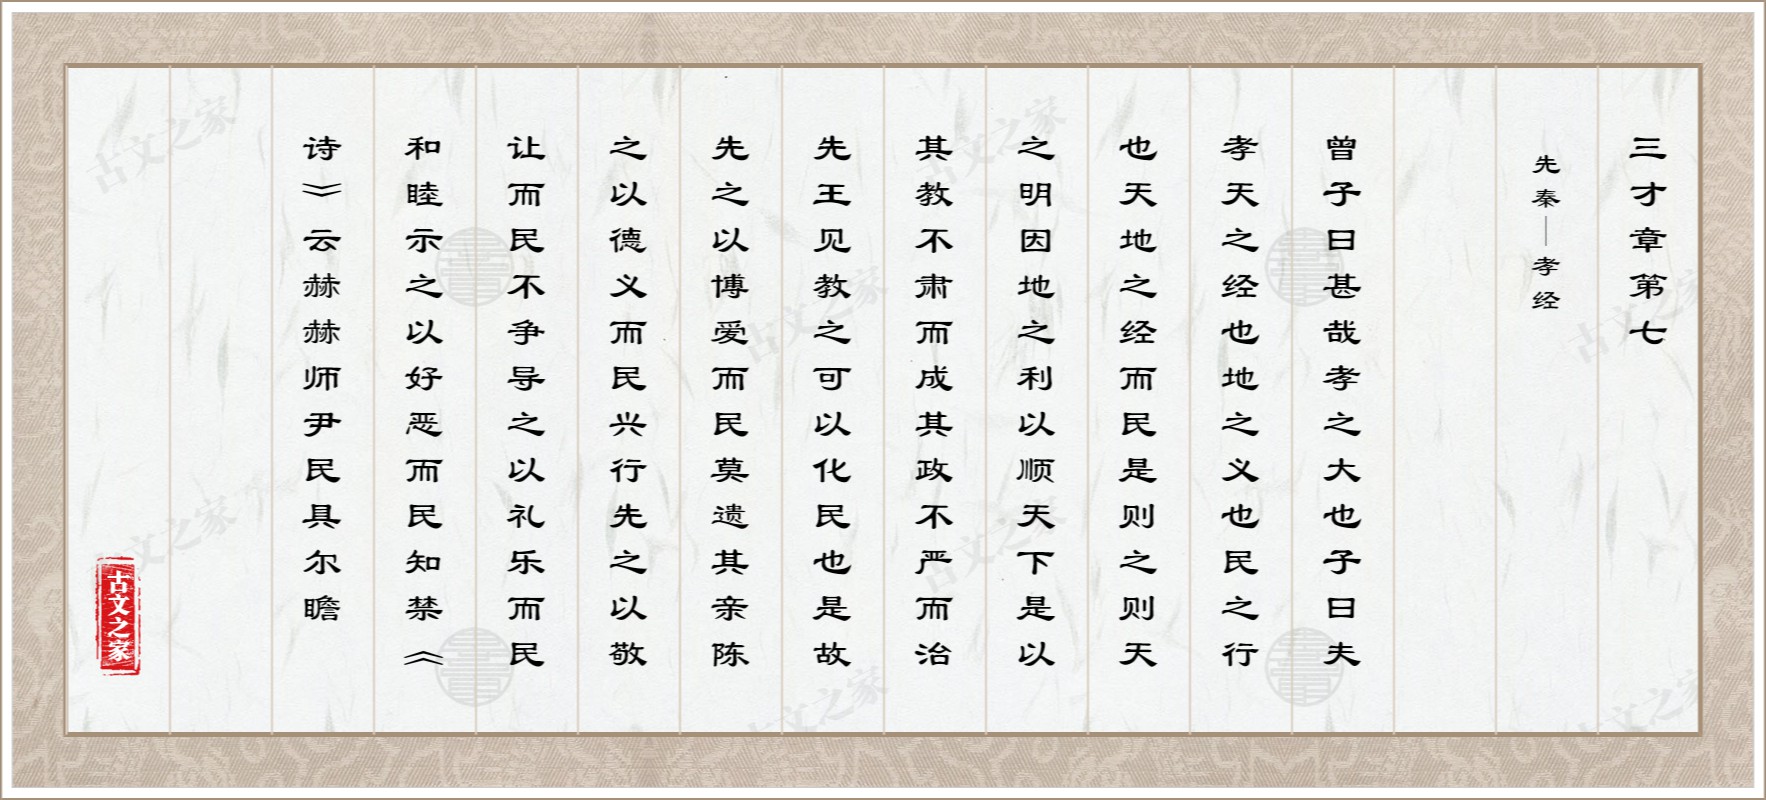 三才章第七
先秦—孝经
曾子曰甚哉孝之大也子曰夫
孝天之经也地之义也民之行
也天地之经而民是则之则天
之明因地之利以顺天下是以
其教不肃而成其政不严而治
先王见教之可以化民也是故
先之以博爱而民莫遗其亲陈
之以德义而民兴行先之以敬
让而民不争导之以礼乐而民
和睦示之以好恶而民知禁《
诗》云赫赫师尹民具尔瞻
古文之家